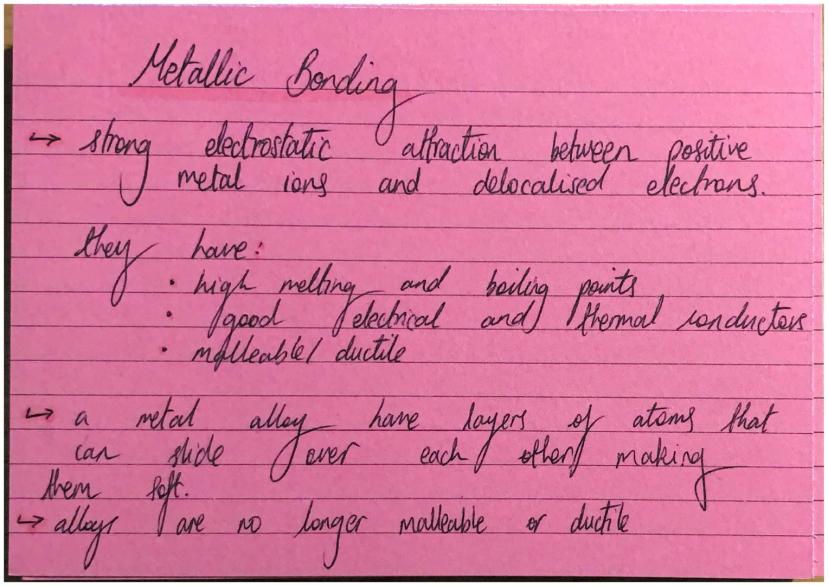 Metallic Bonding
→ strong electrostatic attraction between positive
metal ions and delocalised electrons.
they have:
• high melting and boiling points
• good electrical and thermal conductors
• malleable / ductile
→ a metal alloy have layers of atoms that
can slide over each other making
them soft.
→ alloys are no longer malleable or ductile